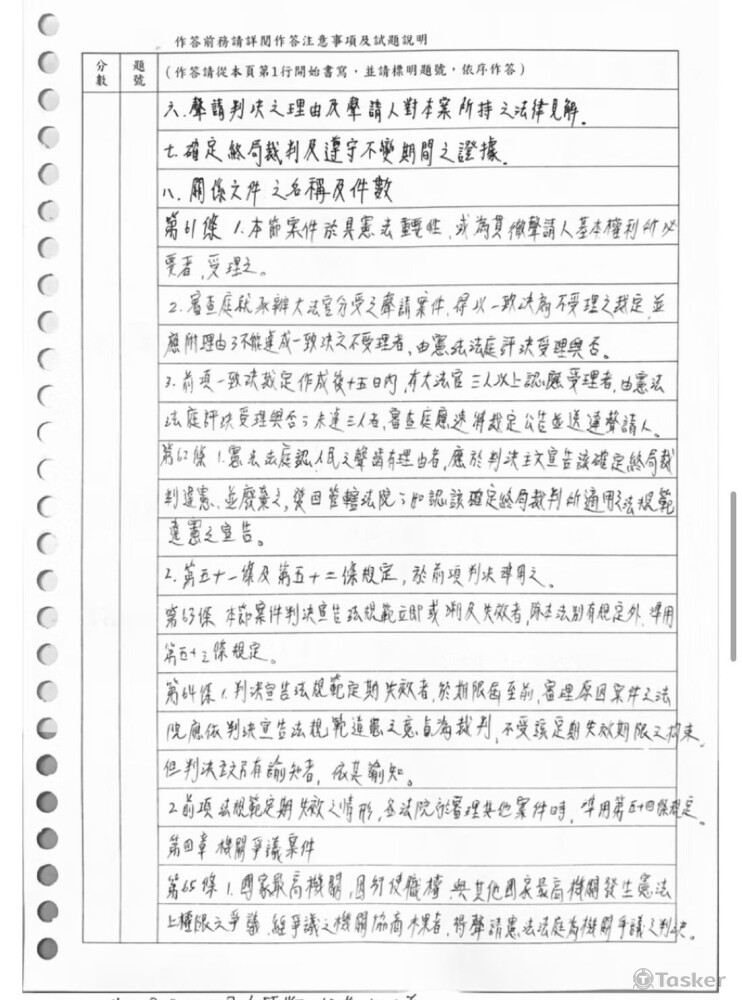 作答前務請詳閱作答注意事項及試題說明
分數
題號
(作答請從本頁第1行開始書寫,並請標明題號,依序作答)
六.聲請判決之理由及聲請人對本案所持之法律見解.
七.確定終局裁判及遵守不變期間之證據.
八.關係文件之名稱及件數
第61條 1.本節案件於具憲法重要性,或為貫徹聲請人基本權利所必
要者,受理之。
2.審查庭就承辦大法官分受之聲請案件,得以一致決為不受理之裁定,並
應附理由;不能達成一致決之不受理者,由憲法法庭評決受理與否。
3.前項一致決裁定作成後十五日內,有大法官三人以上認應受理者,由憲法
法庭評決受理與否;未達三人者,審查庭應速將裁定公告並送達聲請人。
第62條 1.憲法法庭認人民之聲請有理由者,應於判決主文宣告該確定終局裁
判違憲,並廢棄之,發回管轄法院;如認該確定終局裁判所適用之法規範
違憲之宣告。
2.第五十一條及第五十二條規定,於前項判決準用之。
第63條 本節案件判決宣告法規範立即或溯及失效者,除本法別有規定外,準用
第五十三條規定。
第64條 1.判決宣告法規範定期失效者,於期限屆至前,審理原因案件之法
院應依判決宣告法規範違憲之意旨為裁判,不受該定期失效期限之拘束.
但判決主文另有諭知者,依其諭知。
2.前項法規範定期失效之情形,各法院於審理其他案件時,準用第五十四條規定.
第四章 機關爭議案件
第65條 1.國家最高機關,因行使職權,與其他國家最高機關發生憲法
上權限之爭議,經爭議之機關協商未果者,得聲請憲法法庭為機關爭議之判決.
Tasker